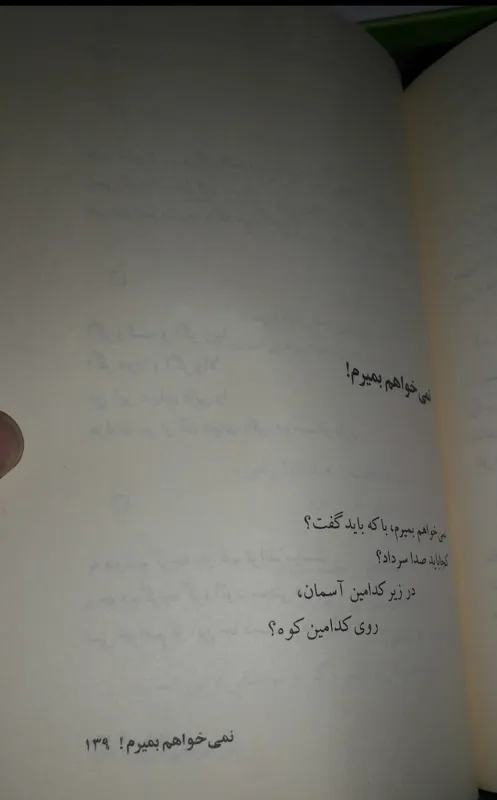 نمی‌خواهم بمیرم!
نمی‌خواهم بمیرم، با که باید گفت؟
کجا باید صدا سر داد؟
در زیر کدامین آسمان،
روی کدامین کوه؟
نمی‌خواهم بمیرم! ۱۳۹